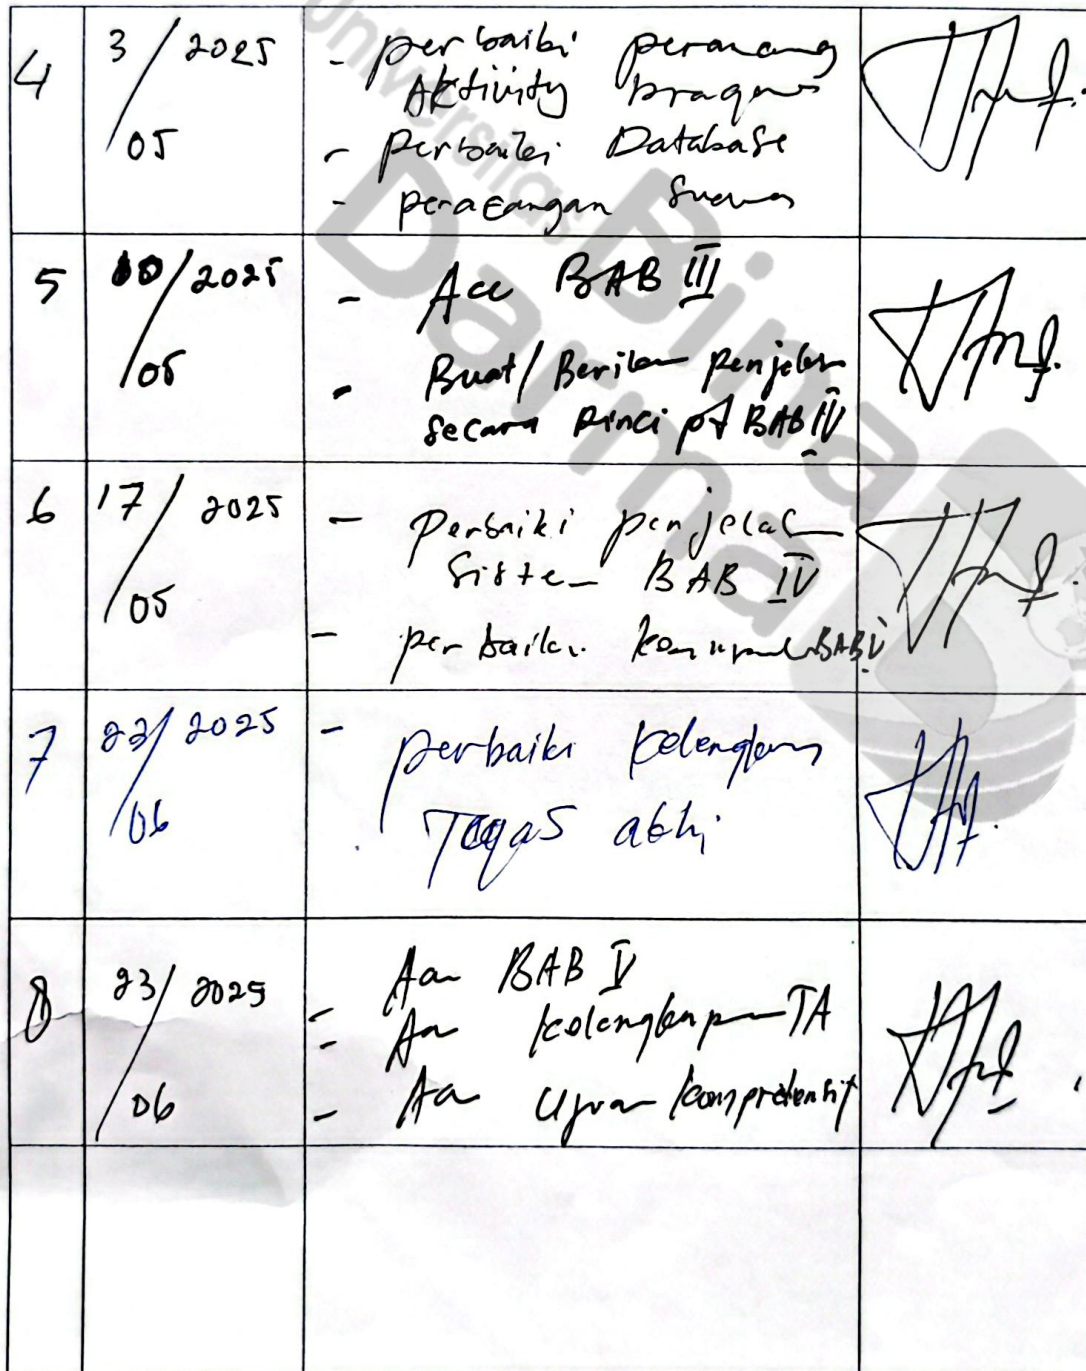 4 3/05 2025 - perbaiki perancang
Aktivity Diagram
- perbaiki Database
- perancangan
5 10/05 2025 - Acc BAB III
- Buat/Berikan penjelasan
secara rinci pd BAB IV
6 17/05 2025 - Perbaiki penjelasan
Sistem BAB IV
- perbaiki kesimpulan BAB V
7 22/06 2025 - perbaiki kelengkapan
Tugas akhir
8 23/06 2025 - Acc BAB V
- Acc kelengkapan TA
- Acc Ujian komprehensif
Universitas
Bina
Darma